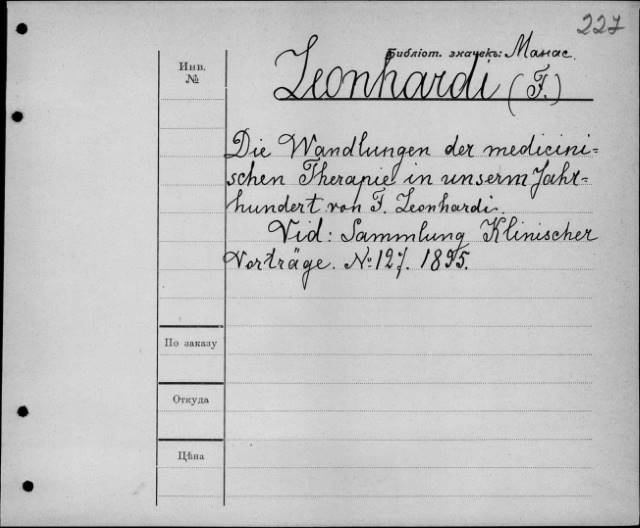 227
Библіот. значекъ: Манас.
Инв.
№
Leonhardi (F.)
Die Wandlungen der medicini=
schen Therapie in unserm Jahr=
hundert von F. Leonhardi.
Vid: Sammlung Klinischer
Vorträge. № 127. 1895.
По заказу
Откуда
Цѣна